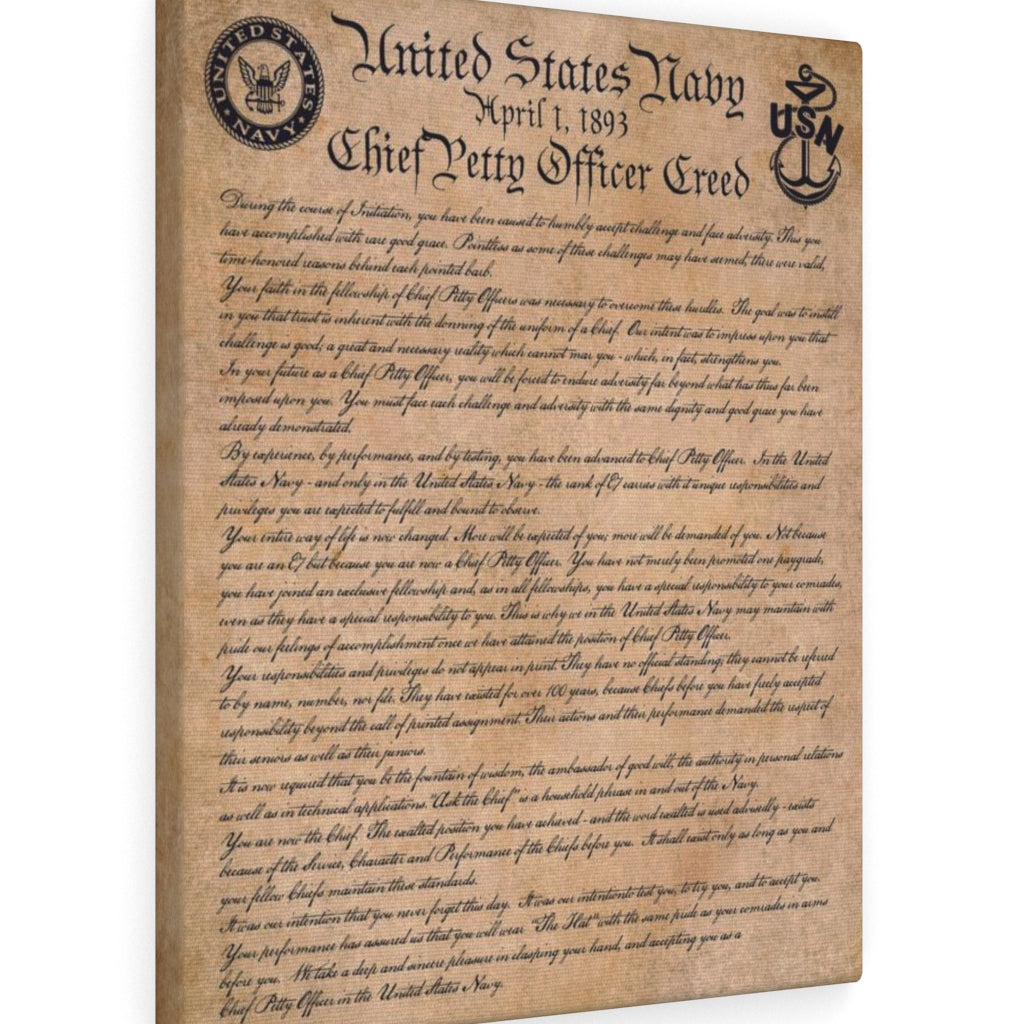 UNITED STATES NAVY
United States Navy
April 1, 1893
Chief Petty Officer Creed
USN
During the course of Initiation, you have been caused to humbly accept challenge and face adversity. This you
have accomplished with rare good grace. Pointless as some of these challenges may have seemed, there were valid,
time-honored reasons behind each pointed barb.
Your faith in the fellowship of Chief Petty Officers was necessary to overcome these hurdles. The goal was to instill
in you that trust is inherent with the donning of the uniform of a Chief. Our intent was to impress upon you that
challenge is good; a great and necessary reality which cannot mar you - which, in fact, strengthens you.
In your future as a Chief Petty Officer, you will be forced to endure adversity far beyond what has thus far been
imposed upon you. You must face each challenge and adversity with the same dignity and good grace you have
already demonstrated.
By experience, by performance, and by testing, you have been advanced to Chief Petty Officer. In the United
States Navy - and only in the United States Navy - the rank of E7 carries with it unique responsibilities and
privileges you are expected to fulfill and bound to observe.
Your entire way of life is now changed. More will be expected of you; more will be demanded of you. Not because
you are an E7 but because you are now a Chief Petty Officer. You have not merely been promoted one paygrade,
you have joined an exclusive fellowship and, as in all fellowships, you have a special responsibility to your comrades,
even as they have a special responsibility to you. This is why we in the United States Navy may maintain with
pride our feelings of accomplishment once we have attained the position of Chief Petty Officer.
Your responsibilities and privileges do not appear in print. They have no official standing; they cannot be referred
to by name, number, nor file. They have existed for over 100 years, because Chiefs before you have freely accepted
responsibility beyond the call of printed assignment. Their actions and their performance demanded the respect of
their seniors as well as their juniors.
It is now required that you be the fountain of wisdom, the ambassador of good will, the authority in personal relations
as well as in technical applications. "Ask the Chief" is a household phrase in and out of the Navy.
You are now the Chief. The exalted position you have achieved - and the word exalted is used advisedly - exists
because of the Service, Character and Performance of the Chiefs before you. It shall exist only as long as you and
your fellow Chiefs maintain these standards.
It was our intention that you never forget this day. It was our intentionto test you, to try you, and to accept you.
Your performance has assured us that you will wear "The Hat" with the same pride as your comrades in arms
before you. We take a deep and sincere pleasure in clasping your hand, and accepting you as a
Chief Petty Officer in the United States Navy.